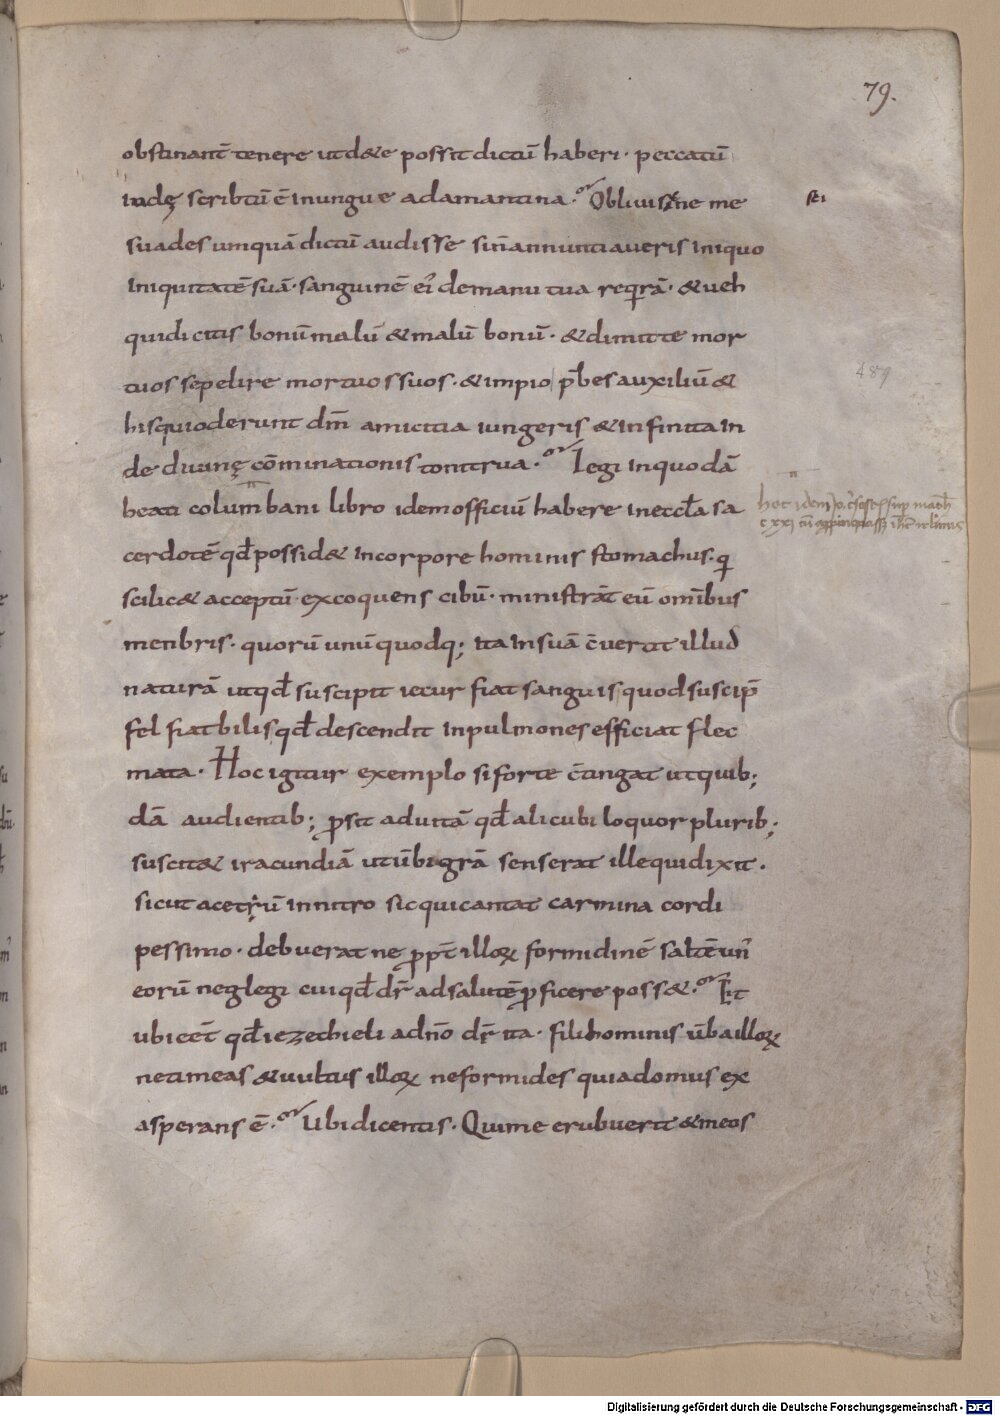 79.
obstinant̄ tenere ut d&e possit dictū haberi · peccatū
iudę scribtū ē in ungue adamantina · Obliuisne me
sti
suades umquā dictū audisse sin̄ annuntiaueris iniquo
iniquitatē suā · sanguinē ei᷒ de manu tua reqrā · & ueh
qui dicitis bonū malū & malū bonū · & dimitte mor
tuos sepelire mortuos suos · & impio p̄bes auxiliū &
489
his qui oderunt dm̄ amicitia iungeris & infinita in
de diuinę cōminationis tonitrua · Legi in quodā
beati columbani libro idem officiū habere in eccl̄a sa
hoc idem
cerdotē qd̄ possid& in corpore hominis stomachus · q
scilic& acceptū excoquens cibū · ministrāt eū omībus
menbris · quorū unūquodq; ita in suā c̄uertit illud
naturā ut qd̄ suscipit iecur fiat sanguis quod suscip̄
fel fiat bilis qd̄ descendit in pulmones efficiat flec
mata · Hoc igitur exemplo si forte c̄tingat ut quib;
dā audientib; ꝓsit ad uitā qd̄ alicubi loquor plurib;
suscit& iracundiā ut ūbi grā senserat ille qui dixit ·
sicut acetū in nitro sic qui cantat carmina cordi
pessimo · debuerat ne ꝓpt̄ illoꝝ formidinē saltē un᷒
eorū neglegi cui qd̄ dr̄ ad salutē ꝓficere poss& · Et
ubi eēt qd̄ iezechieli a dn̄o dr̄ ita · fili hominis ūba illoꝝ
ne timeas & uultus illoꝝ ne formides quia domus ex
asperans ē · Ubi dicentis · Qui me erubuerit & meos
Digitalisierung gefördert durch die Deutsche Forschungsgemeinschaft - DFG